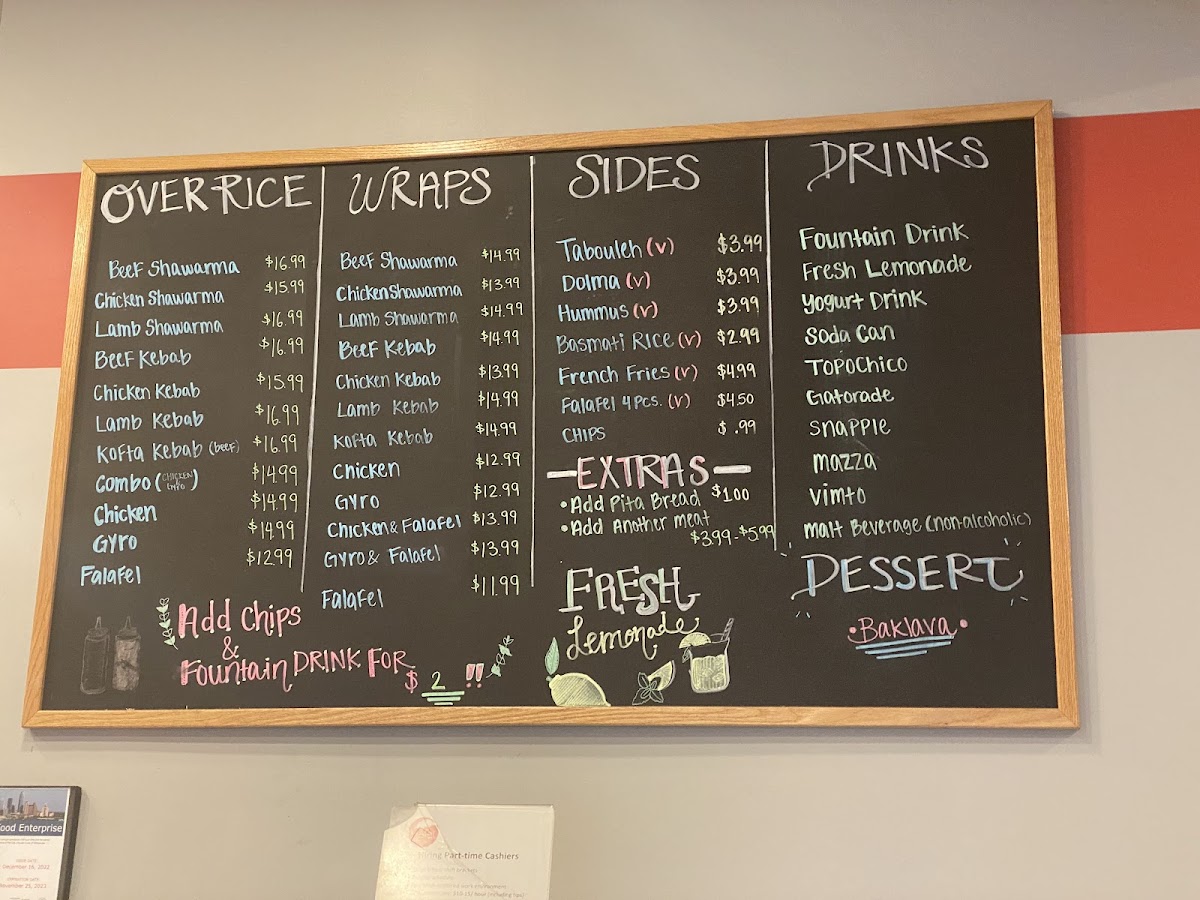 OVER RICE
Beef Shawarma $16.99
Chicken Shawarma $15.99
Lamb Shawarma $16.99
Beef Kebab $16.99
Chicken Kebab $15.99
Lamb Kebab $16.99
Kofta Kebab (beef) $16.99
Combo (CHICKEN GYRO) $14.99
Chicken $14.99
Gyro $14.99
Falafel $12.99
Add Chips
&
Fountain DRINK FOR
$ 2 !!
WRAPS
Beef Shawarma $14.99
Chicken Shawarma $13.99
Lamb Shawarma $14.99
Beef Kebab $14.99
Chicken Kebab $13.99
Lamb Kebab $14.99
Kofta Kebab $14.99
Chicken $12.99
Gyro $12.99
Chicken & Falafel $13.99
Gyro & Falafel $13.99
Falafel $11.99
SIDES
Tabouleh (v) $3.99
Dolma (v) $3.99
Hummus (v) $3.99
Basmati Rice (v) $2.99
French Fries (v) $4.99
Falafel 4 Pcs. (v) $4.50
CHIPS $ .99
—EXTRAS—
•Add Pita Bread $100
•Add Another meat
$3.99-$5.99
FRESH
Lemonade
DRINKS
Fountain Drink
Fresh Lemonade
Yogurt Drink
Soda Can
TOPOCHICO
Gatorade
Snapple
Mazza
Vimto
Malt Beverage (non-alcoholic)
DESSERT
•Baklava•
Food Enterprise
Part-time Cashiers